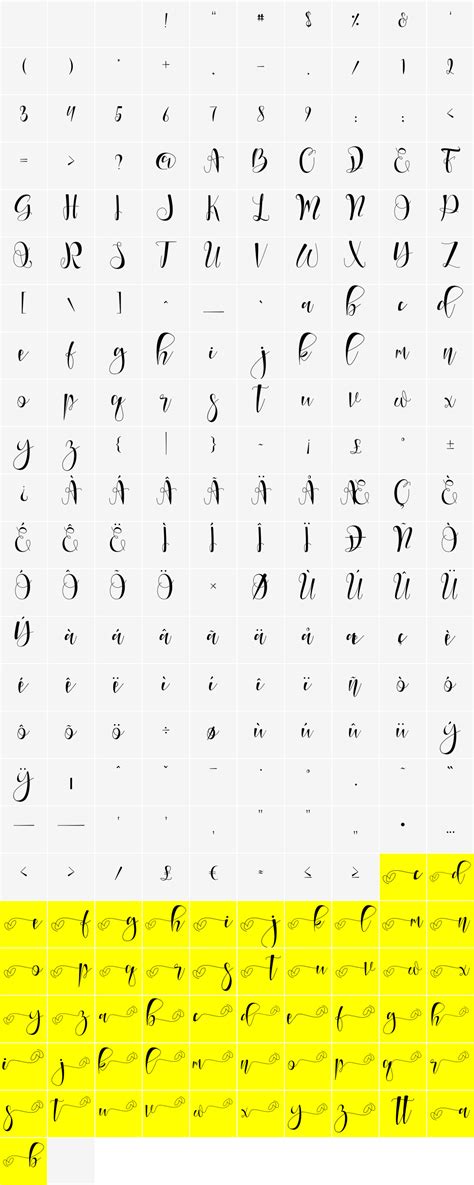 ! " # $ % & '
( ) * + , - . / 1 2
3 4 5 6 7 8 9 : ; <
= > ? @ A B C D E F
G H I J K L M N O P
Q R S T U V W X Y Z
[ \ ] ^ _ ` a b c d
e f g h i j k l m n
o p q r s t u v w x
y z { | } ~ ¡ £ ° ±
¿ À Á Â Ã Ä Å Æ Ç È
É Ê Ë Ì Í Î Ï Ð Ñ Ò
Ó Ô Õ Ö × Ø Ù Ú Û Ü
Ý à á â ã ä å æ ç è
é ê ë ì í î ï ñ ò ó
ô õ ö ÷ ø ù ú û ü ý
Ÿ ı ˆ ˇ ˘ ˙ ˚ ˛ ˜ ˝
– — ‘ ’ ‚ “ ” „ • …
‹ › ⁄ £ € − ≤ ≥ c d
e f g h i j k l m n
o p q r s t u v w x
y z a b c d e f g h
i j k l m n o p q r
s t u v w x y z tt a
b